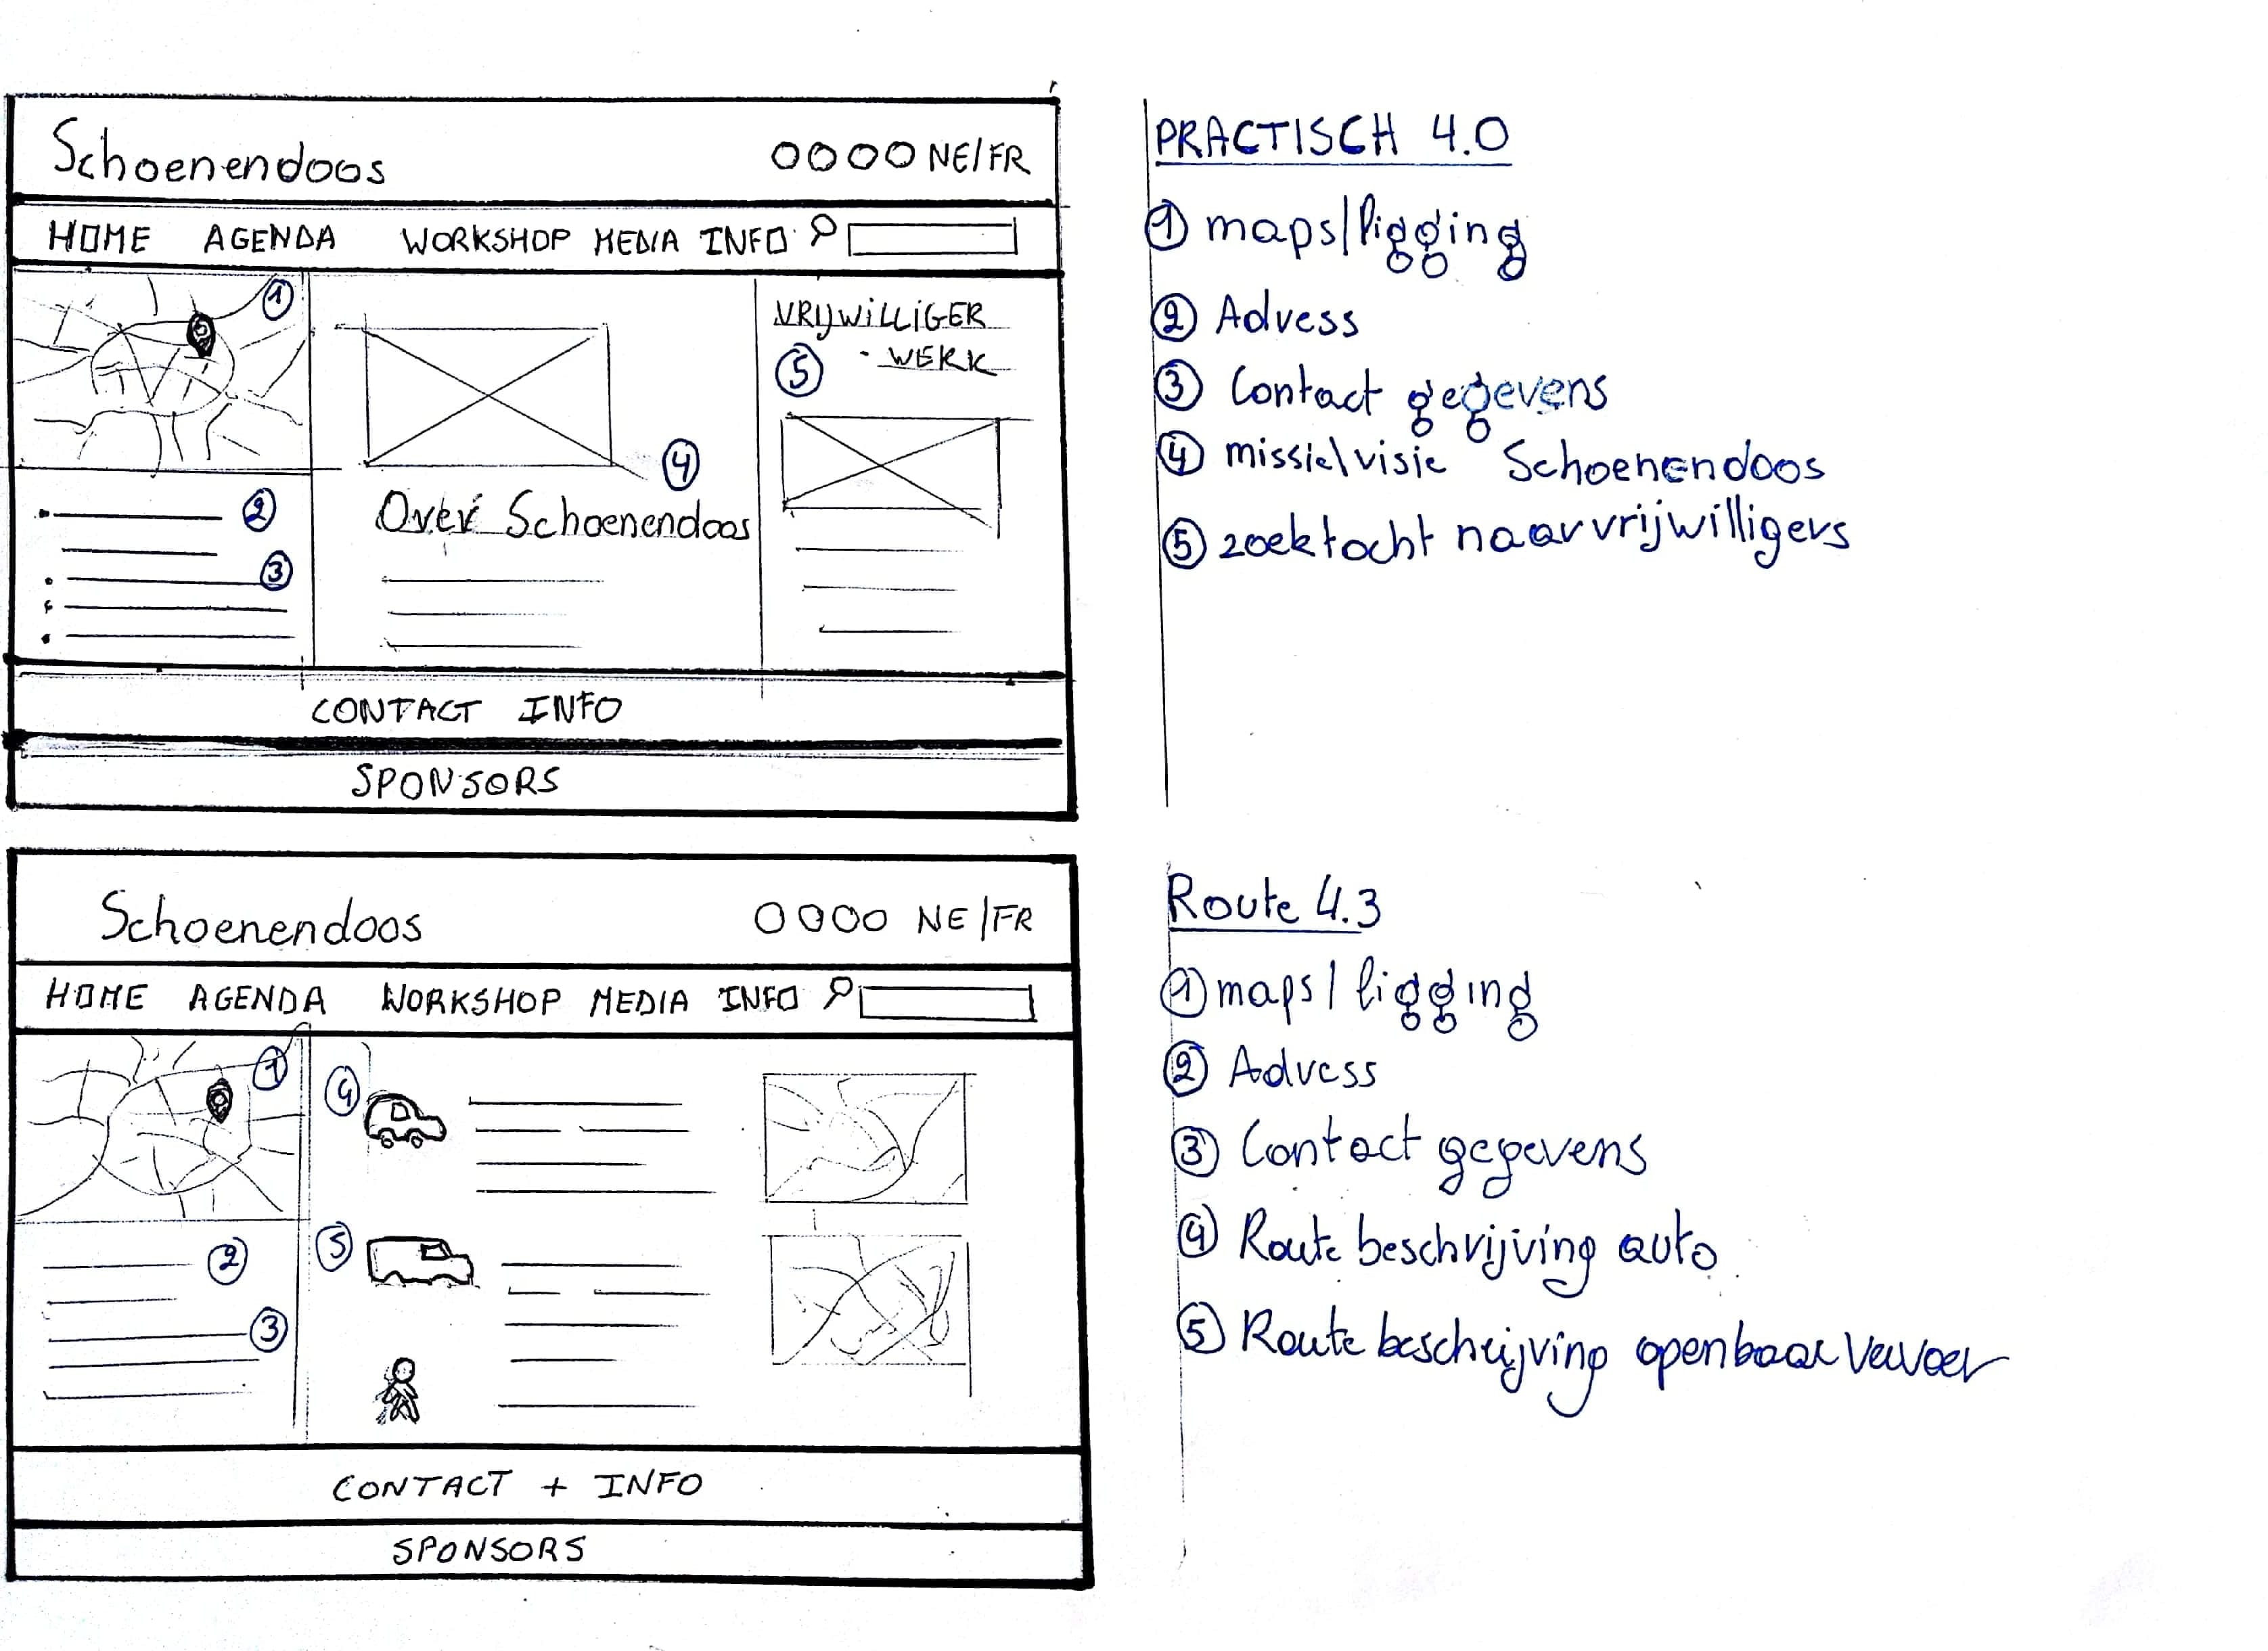 Schoenendoos
NE/FR
HOME AGENDA WORKSHOP MEDIA INFO
1
VRIJWILLIGER
- WERK
5
4
2
Over Schoenendoos
3
CONTACT INFO
SPONSORS
PRACTISCH 4.0
1 maps/ligging
2 Adress
3 Contact gegevens
4 missie/visie Schoenendoos
5 zoektocht naar vrijwilligers
Schoenendoos
NE/FR
HOME AGENDA WORKSHOP MEDIA INFO
1
4
5
2
3
CONTACT + INFO
SPONSORS
Route 4.3
1 maps/ligging
2 Adress
3 Contact gegevens
4 Route beschrijving auto
5 Route beschrijving openbaar vervoer